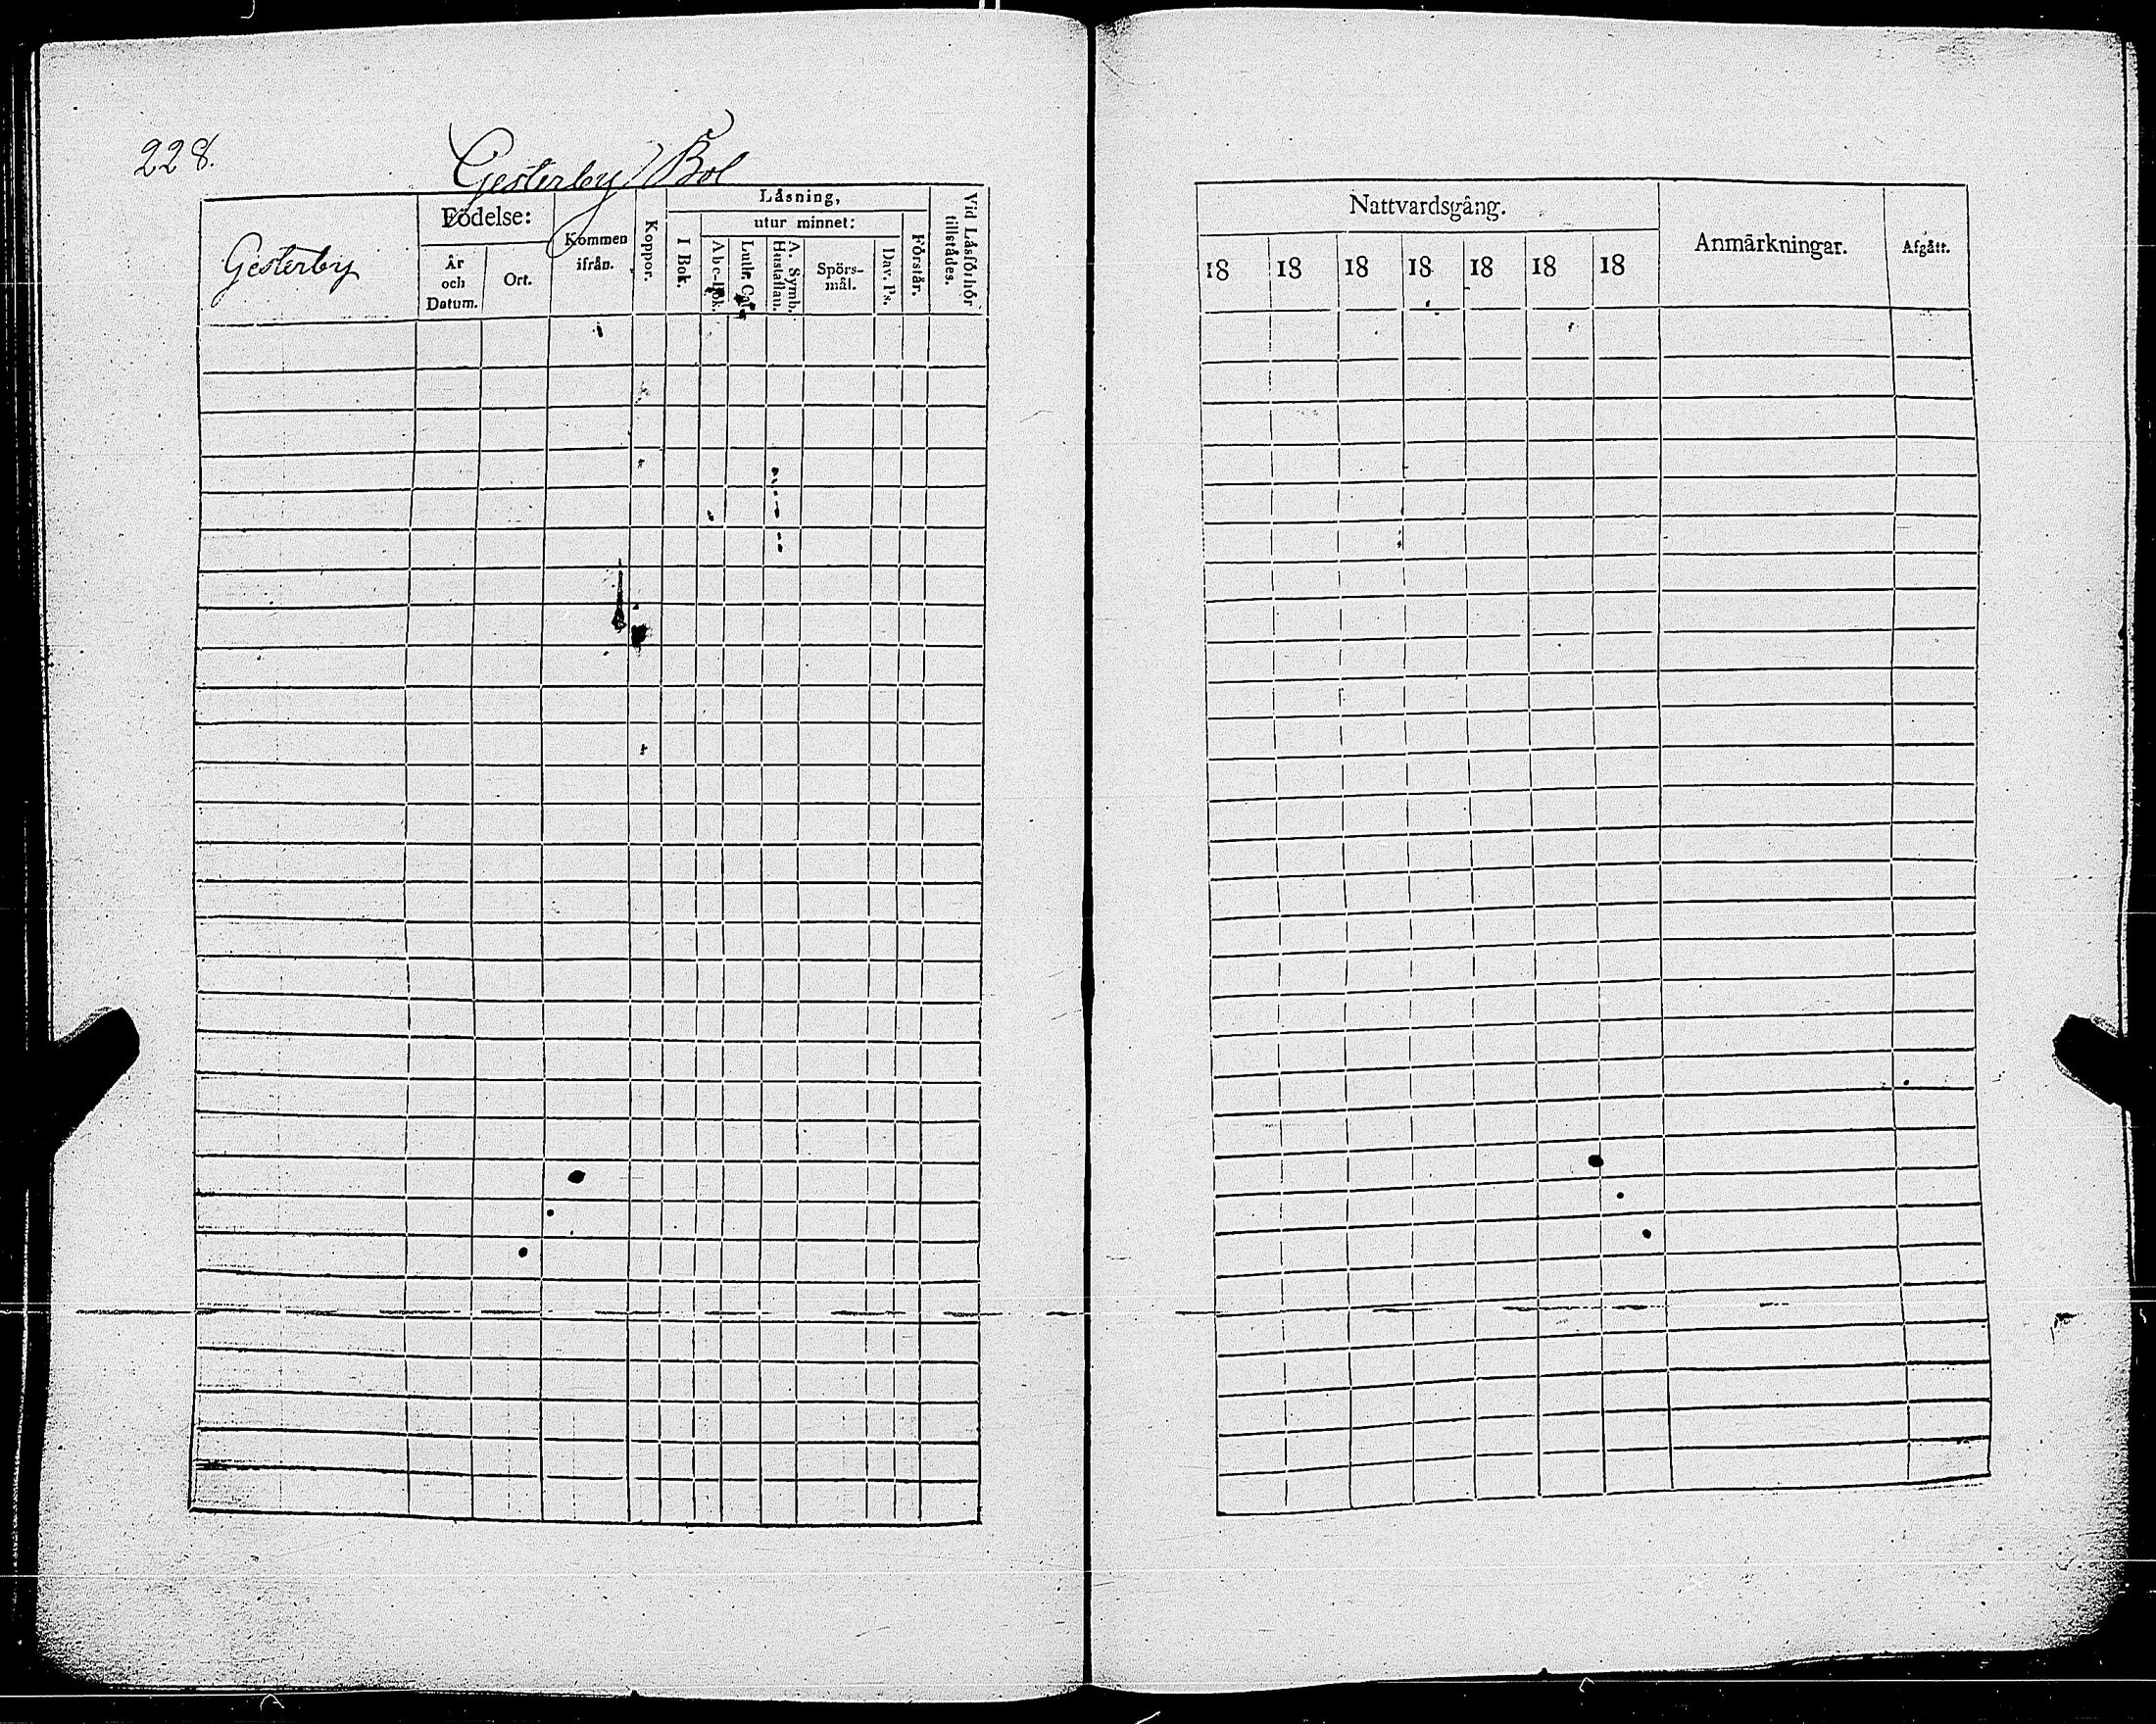 228.
Gesterby Bol
Gesterby
Födelse:
År och Datum.
Ort.
Kommen ifrån.
Koppor.
Låsning,
I Bok.
utur minnet:
Abc-bok.
Luth. Cat.
A. Symb. Hustaflan.
Spörs-mål.
Dav. Ps.
Förstår.
Vid Låsförhör tillstådes.
Nattvardsgång.
18 18 18 18 18 18 18
Anmärkningar.
Afgått.